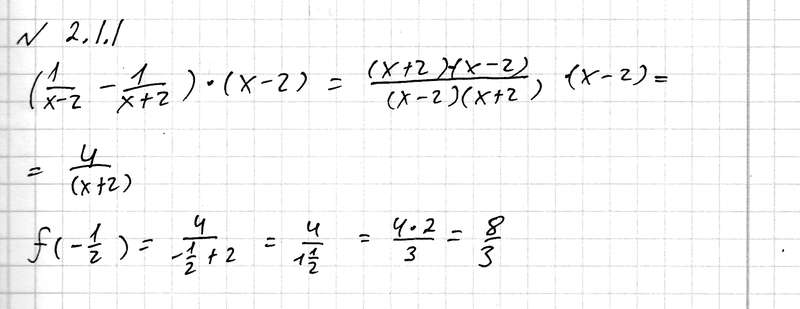 № 2.1.1
(1/(x-2) - 1/(x+2)) · (x-2) = ((x+2)-(x-2))/((x-2)(x+2)) · (x-2) =
= 4/(x+2)
f(-1/2) = 4/(-1/2+2) = 4/(1 1/2) = (4·2)/3 = 8/3